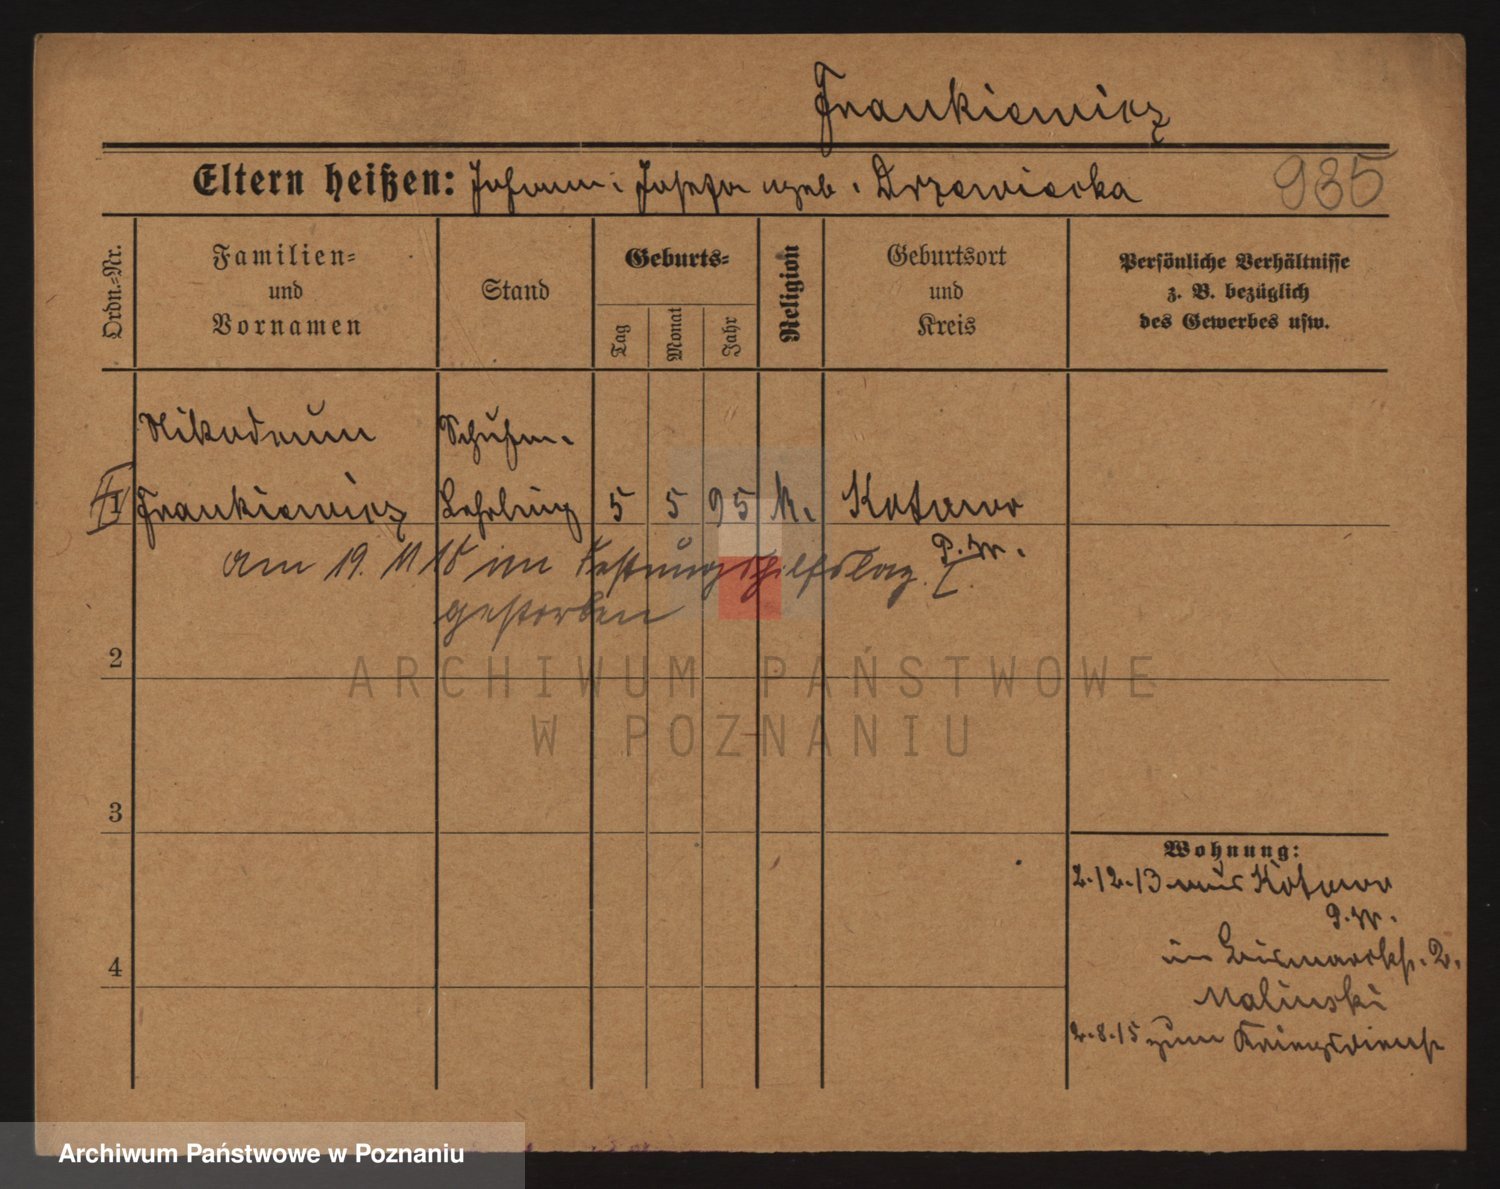 Frankiewicz
Eltern heißen: Johann i Josefa geb. Drzewiecka
935
Ordn.-Nr.
Familien-
und
Vornamen
Stand
Geburts-
Tag
Monat
Jahr
Religion
Geburtsort
und
Kreis
Persönliche Verhältnisse
z. B. bezüglich
des Gewerbes usw.
Nikodemm Schuhm.
Frankiewicz Lehrling 5 5 95 K. Kotowo
P. W.
am 19. 11 15 im Festungshilfslaz. I
gestorben
2
3
4
Wohnung:
2.12.13 aus Kotowo
P. W.
in Bismarckst. 2.
Malinski
2.8.15 zum Kriegsdienst
ARCHIWUM PAŃSTWOWE
W POZNANIU
Archiwum Państwowe w Poznaniu